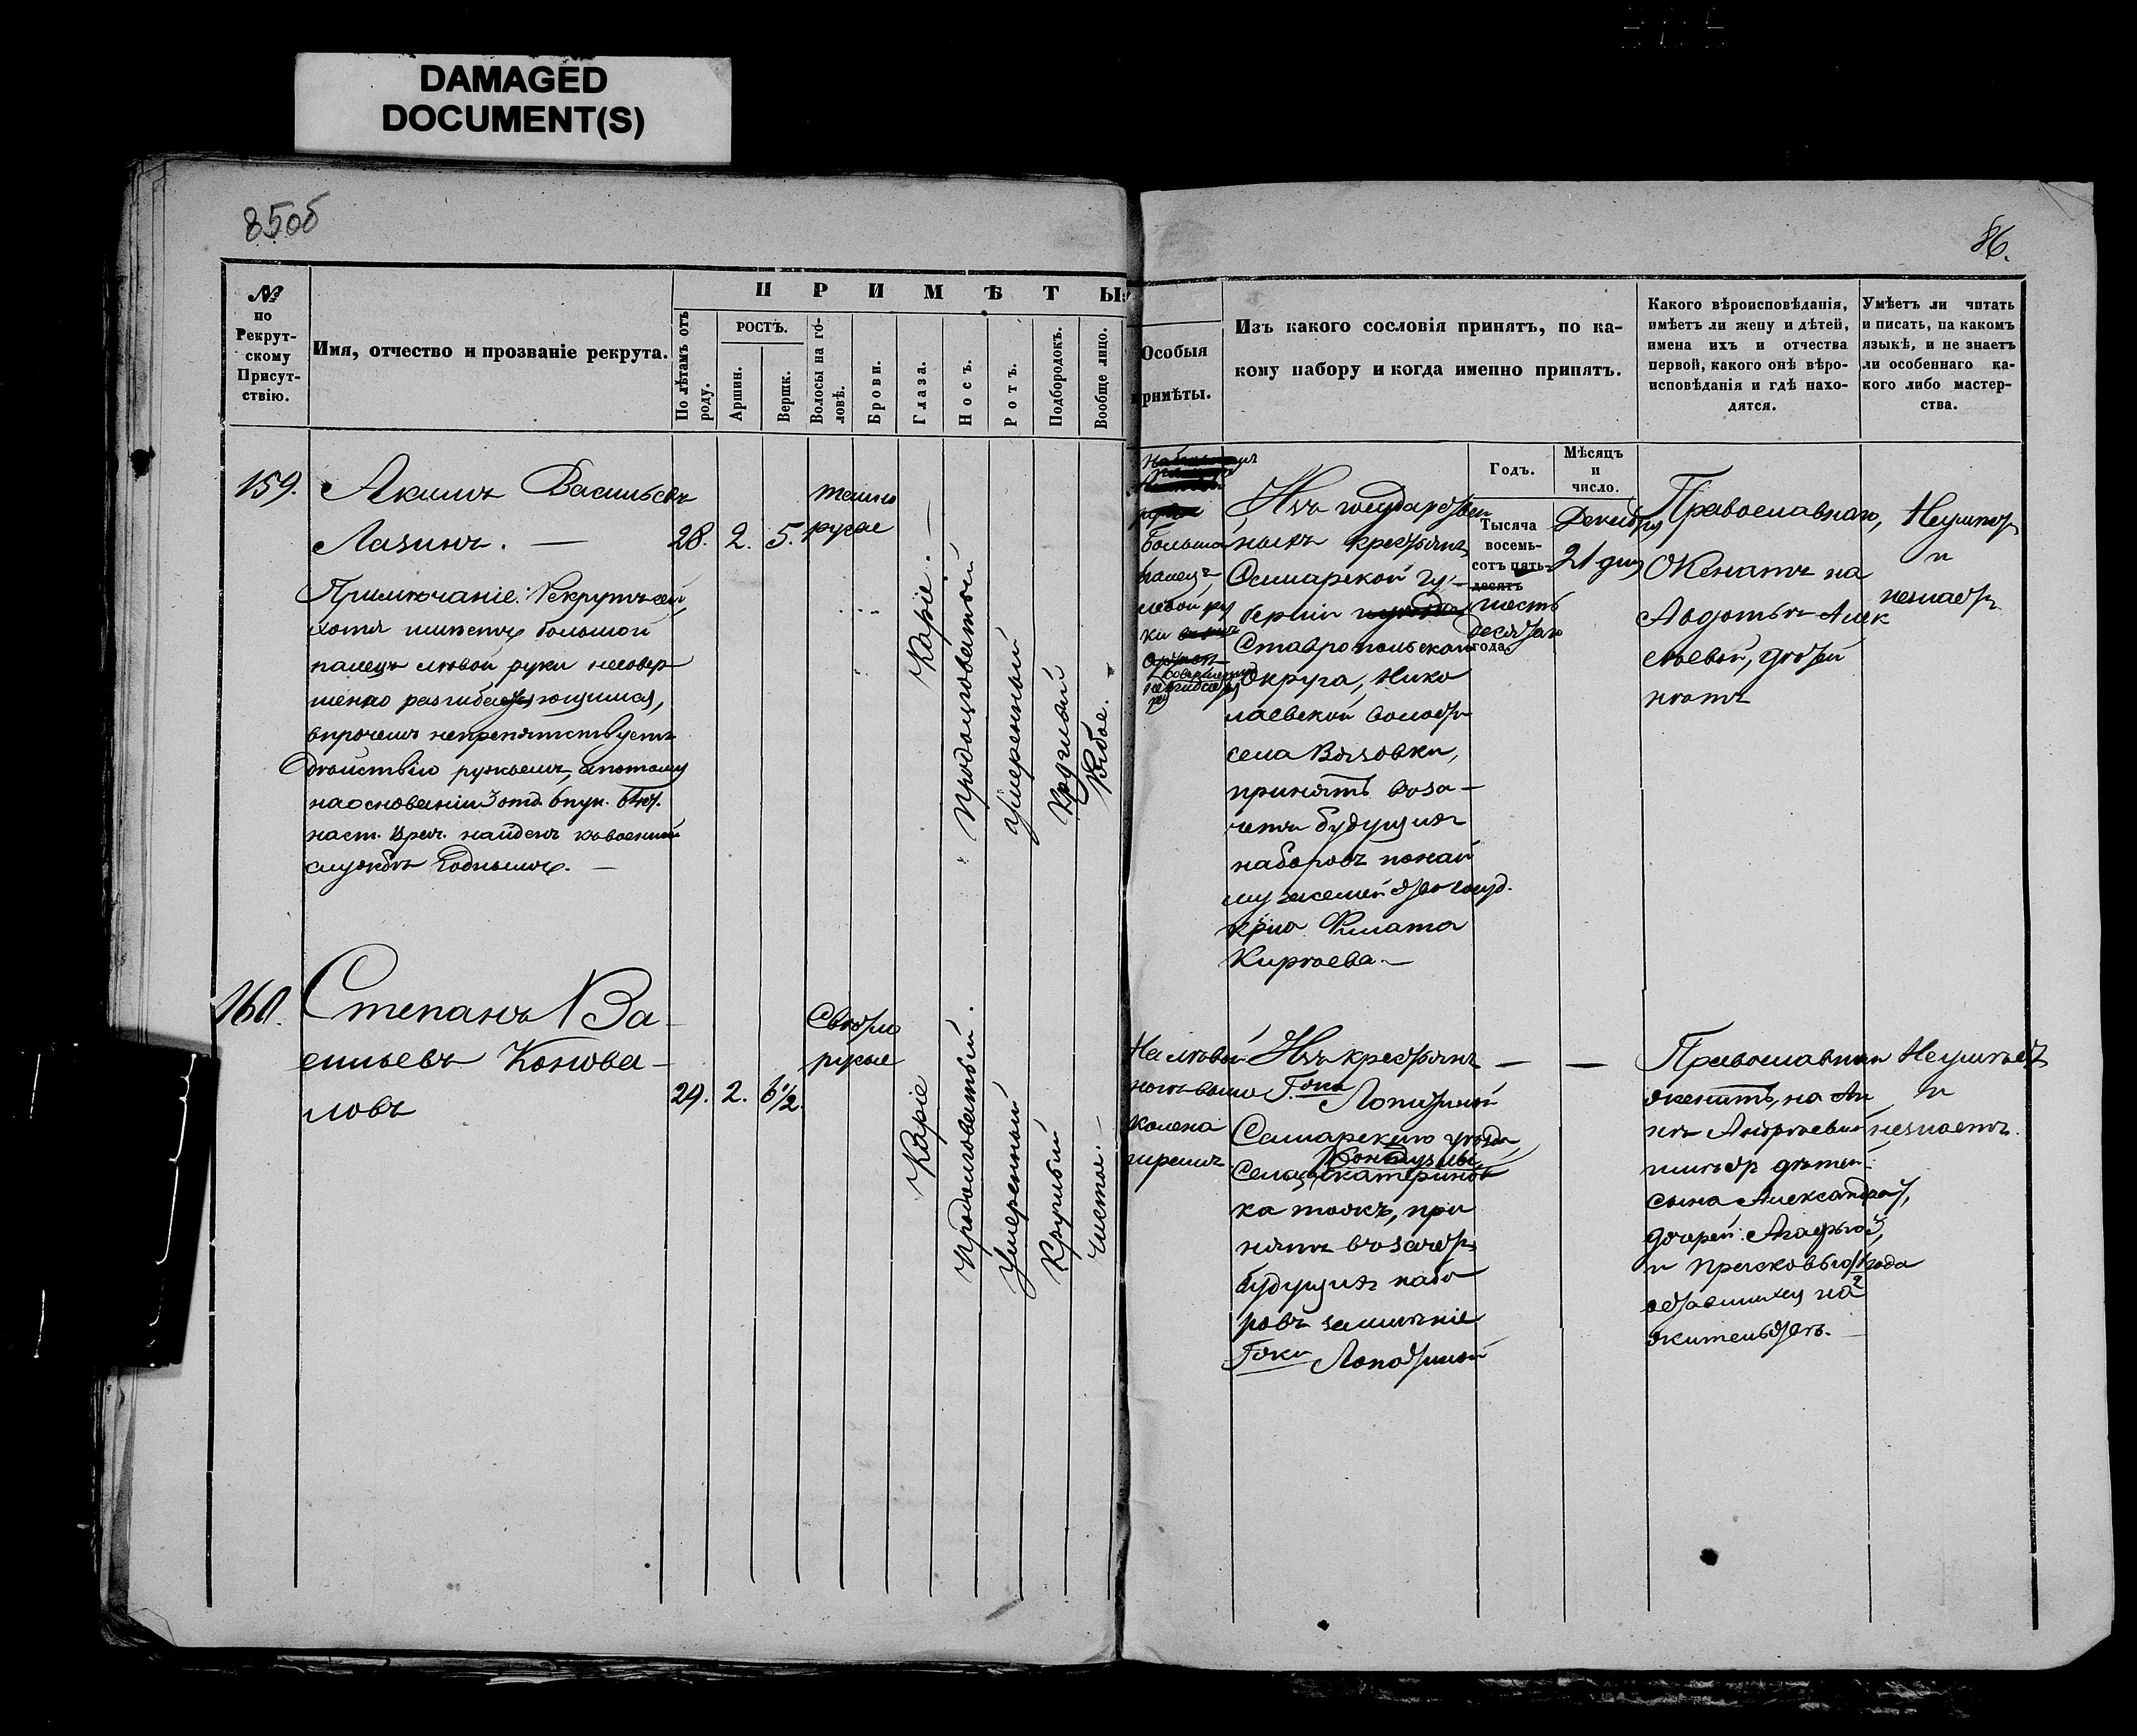 DAMAGED
DOCUMENT(S)
85об
86.
№
по
Рекрут-
скому
Присут-
ствію.
Имя, отчество и прозваніе рекрута.
П Р И М Ѣ Т Ы:
По лѣтамъ отъ
роду.
РОСТЪ.
Аршин.
Вершк.
Волосы на го-
ловѣ.
Брови.
Глаза.
Носъ.
Ротъ.
Подбородокъ.
Вообще лицо.
Особыя
примѣты.
Изъ какого сословія принятъ, по ка-
кому набору и когда именно принятъ.
Какого вѣроисповѣданія,
имѣетъ ли жену и дѣтей,
имена ихъ и отчества
первой, какого онѣ вѣро-
исповѣданія и гдѣ нахо-
дятся.
Умѣетъ ли читать
и писать, на какомъ
языкѣ, и не знаетъ
ли особеннаго ка-
кого либо мастер-
ства.
159.
Акимъ Васильевъ
Лазинъ. —
Примѣчаніе: Рекрутъ сей,
хотя имѣетъ большой
палецъ лѣвой руки несовер-
шенно разгибающимся,
впрочемъ непрепятствуетъ
дѣйствію ружьемъ, а потому
на основаніи 3 отд. 6 пун.
наст. врач. найденъ къ военной
службѣ годнымъ. —
28.
2.
5.
темно
русые
Каріе.
Продолговатый
Умеренный
Круглый
Рябое.
Большой
палецъ
левой ру
ки
совершенно
Изъ государствен
ныхъ крестьянъ
Самарской гу-
берніи
Ставропольскаго
округа, Нико
лаевской волости
села Вязовки,
принятъ въ за-
четъ будущихъ
наборовъ по най
му за семейство госуд.
кр-на Филата
Киреева —
Годъ.
Тысяча
восемь-
сотъ пять-
десятъ
шесть
десятаго
года.
Мѣсяцъ
и
число.
Декабря
21 дня
Православнаго,
Женатъ на
Авдотьѣ Алек
сѣевой, дѣтей
нѣтъ
Неумѣетъ
и
незнаетъ
160.
Степанъ Ва-
сильевъ Конова-
ловъ
29.
2.
6 1/2.
Светло
русые
Каріе
Продолговатый.
Умеренный
Круглый
Чистое. —
На левой
ноге выше
колена
шрамъ
Изъ крестьянъ
Г-жи
Самарскаго уѣзда,
Кондузлы,
Сельца Екатеринов
ка тожъ, при
нятъ въ зачетъ
будущихъ набо
ровъ за имѣніе
Г-жи
—
—
Православнаго
женатъ, на Ан
нѣ Андреевне
имѣетъ дѣтей
сына Александра,
дочерей: Агафью 3,
и Прасковью 1/2 года
оставшихся на
жительствѣ. —
Неумѣетъ
и
незнаетъ.